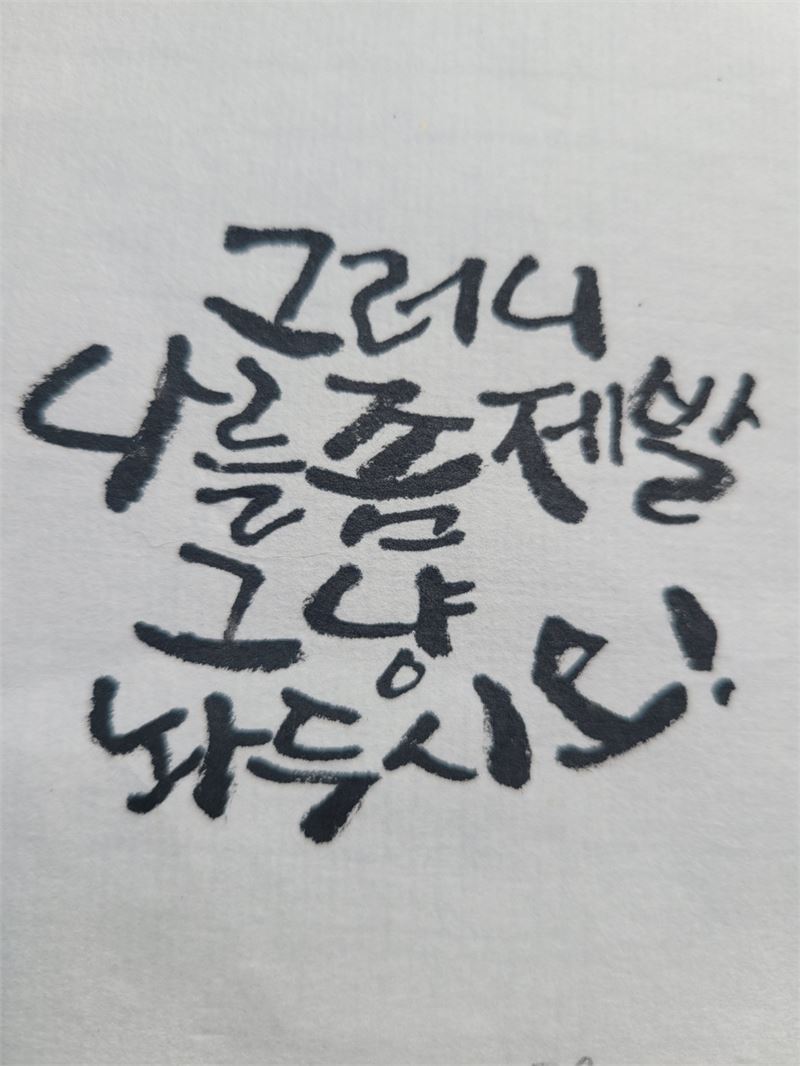 그러니
나를 좀 제발
그냥
놔두시오!